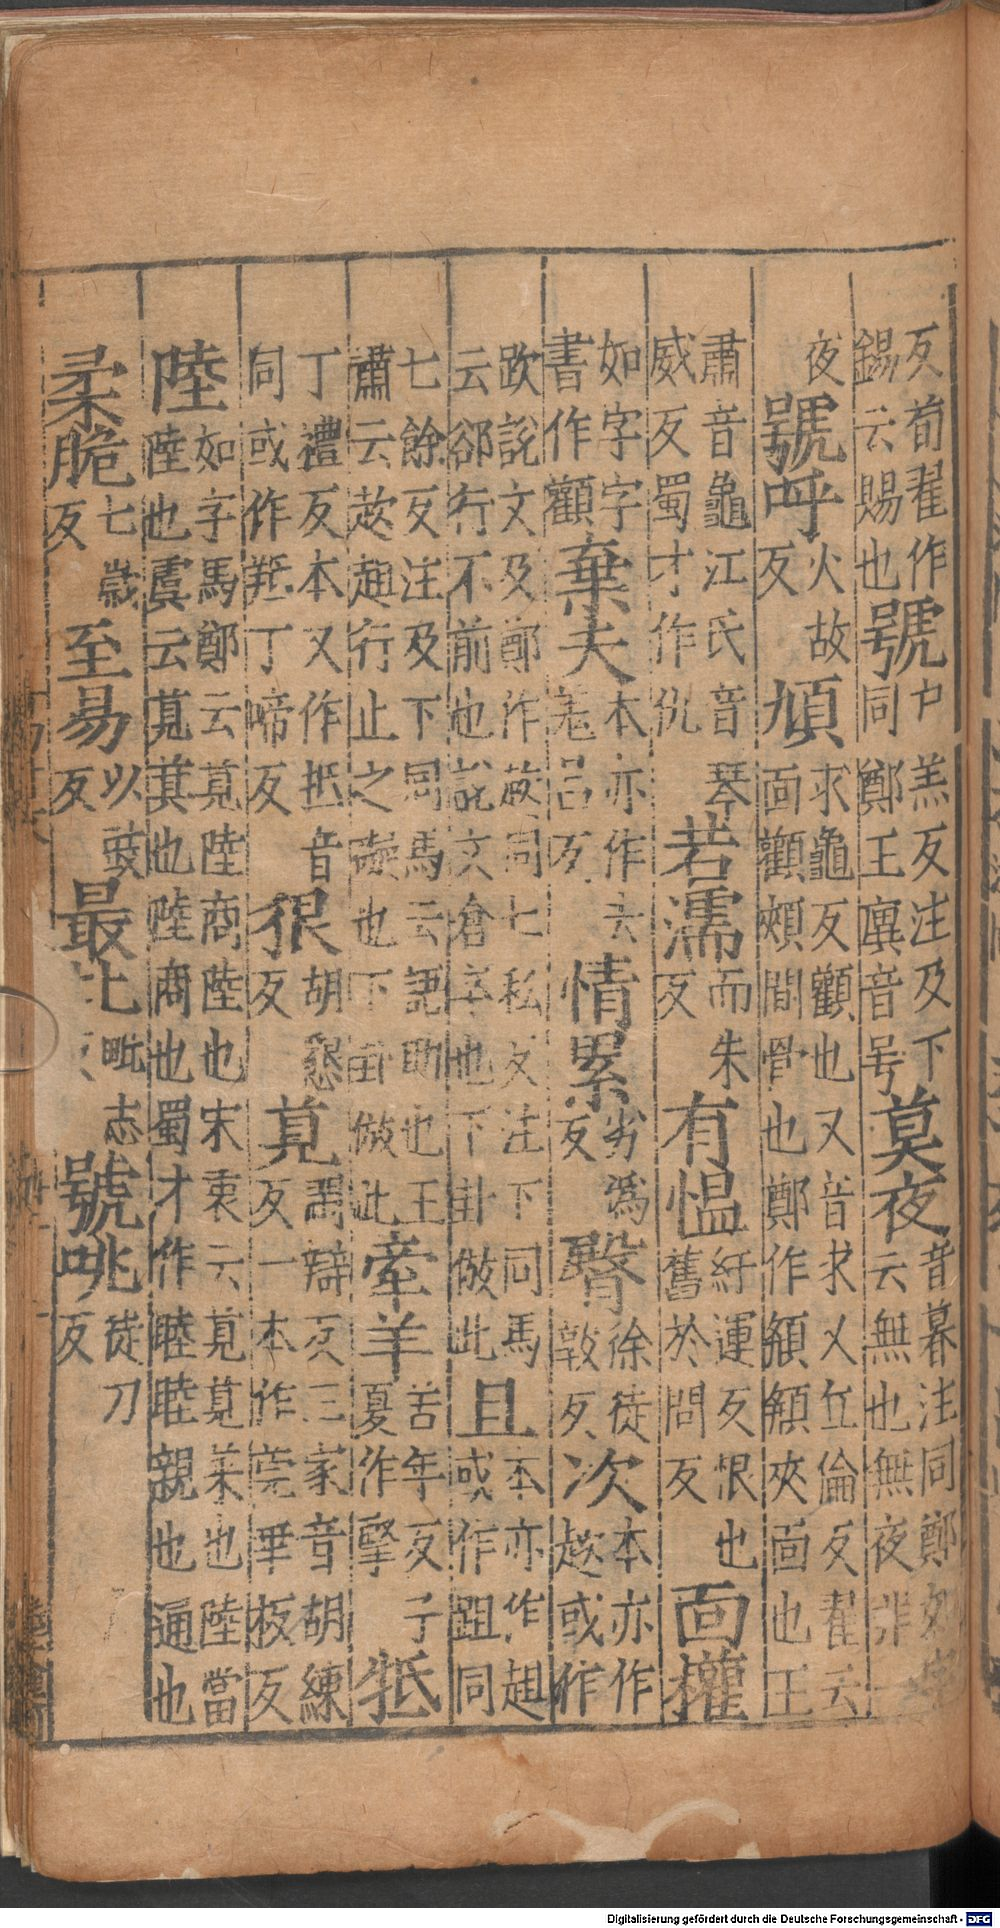 反荀翟作錫云賜也號户羔反注及下同鄭王廙音号莫夜音暮注同鄭如字云無也無夜非一
夜號呼火故反頄求龜反顴也又音求又丘倫反翟云面顴頰間骨也鄭作頯頯夾面也王
肅音龜江氏音琴威反蜀才作仇若濡而朱反有愠紆運反恨也舊於問反面權
如字字書作顴棄夫本亦作去羌呂反情累劣為反臀徐徒敦反次本亦作趑或作
說文及鄭作同七私反注下同馬云郤行不前也說文倉卒也下卦倣此且本亦作趄或作跙同
七餘反注及下同馬云語助也王肅云趑趄行止之礙也下卦倣此牽羊苦年反子夏作掔牴
丁禮反本又作抵音同或作羝丁啼反很胡懇反莧閑辯反三家音胡練反一本作莞華板反
陸如字馬鄭云莧陸商陸也宋衷云莧莧菜也陸當陸也虞云莧蓂也陸商也蜀才作睦睦親也通也
柔脆七歲反至易以豉反最比毗志反號咷徒刀反
Digitalisierung gefördert durch die Deutsche Forschungsgemeinschaft - DFG